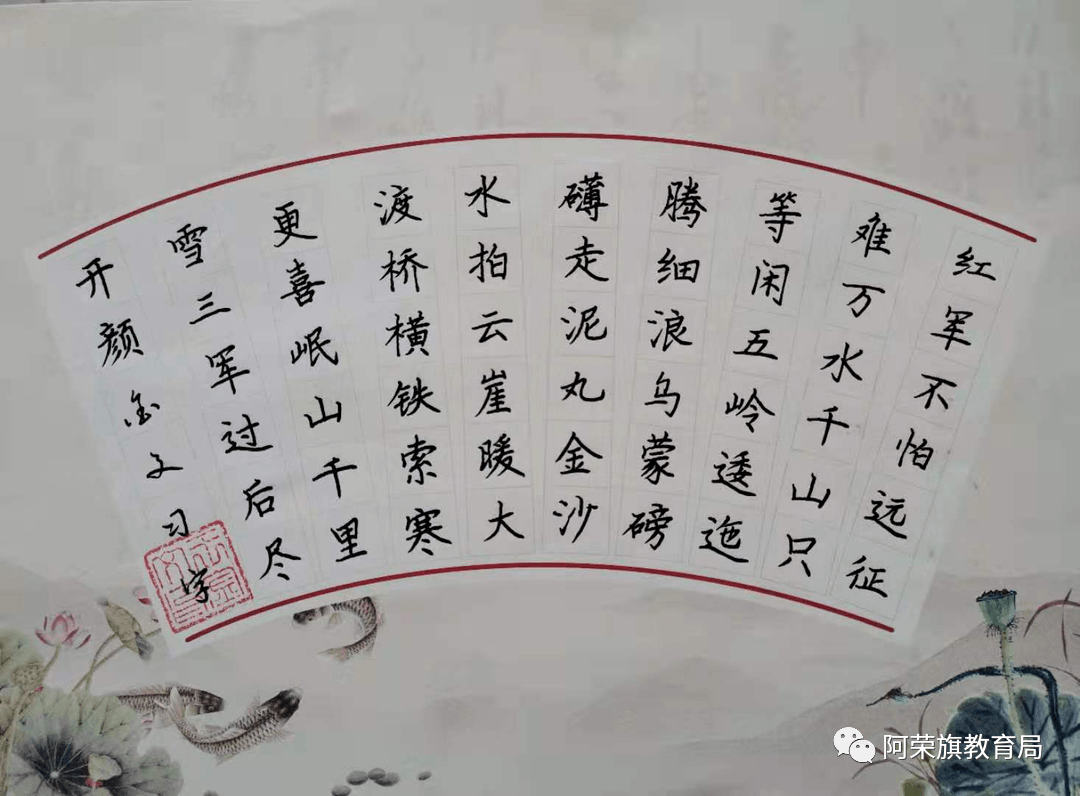 红军不怕远征
难万水千山只
等闲五岭逶迤
腾细浪乌蒙磅
礴走泥丸金沙
水拍云崖暖大
渡桥横铁索寒
更喜岷山千里
雪三军过后尽
开颜金文习字
阿荣旗教育局